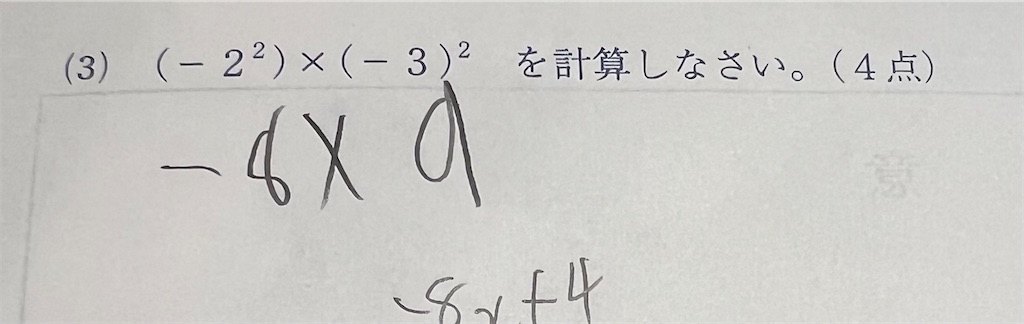 (3) (-2²)×(-3)² を計算しなさい。(4点)
-8×9
-8x+4